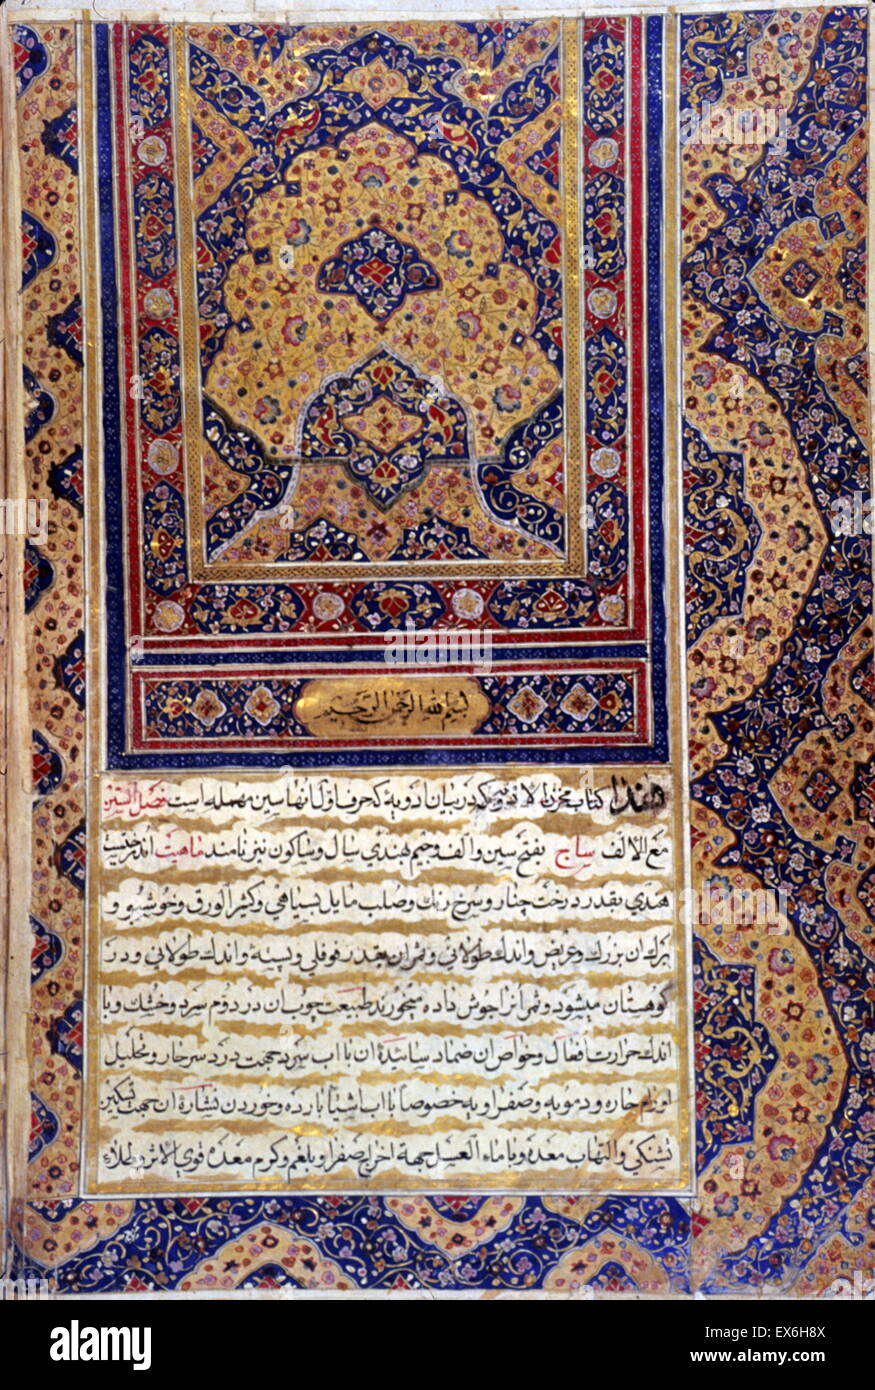 بسم الله الرحمن الرحیم
هذا کتاب مخزن الادویه که در بیان ادویه که حرف اول آنها سین مهمله است فصل السین
مع الالف ساج بفتح سین و الف و جیم هندی سال و ساکون نیز نامند ماهیت آن درختیست
هندی بقدر درخت چنار و سرخ رنک و صلب مایل بسیاهی و کثیر الورق و خوشبو و
برک ان بزرک و عریض و اندک طولانی و ثمر ان بقدر فوفلی و پسته و اندک طولانی و در
کوهستان میشود و ثمر انرا جوش داده میخورند طبیعت چوب ان در دوم سرد و خشک و با
اندک حرارت افعال و خواص ان ضماد سائیده ان با اب سرد جهت درد سر حار و تحلیل
اورام حاره و دمویه و صفراویه خصوصا با اب اشیا بارده و خوردن نشارۀ ان جهت تسکین
تشنکی و التهاب معده و با ماء العسل جهة اخراج صفرا و بلغم و کرم معده قوی الاثر و طلاء
alamy
Image ID: EX6H8X
www.alamy.com